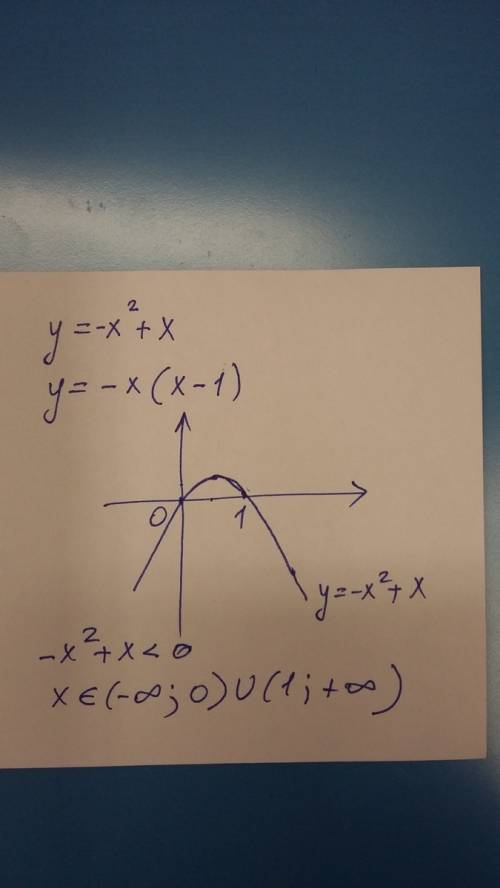 y = -x² + x
y = -x(x-1)
0 1
y = -x² + x
-x² + x < 0
x ∈ (-∞; 0) ∪ (1; +∞)